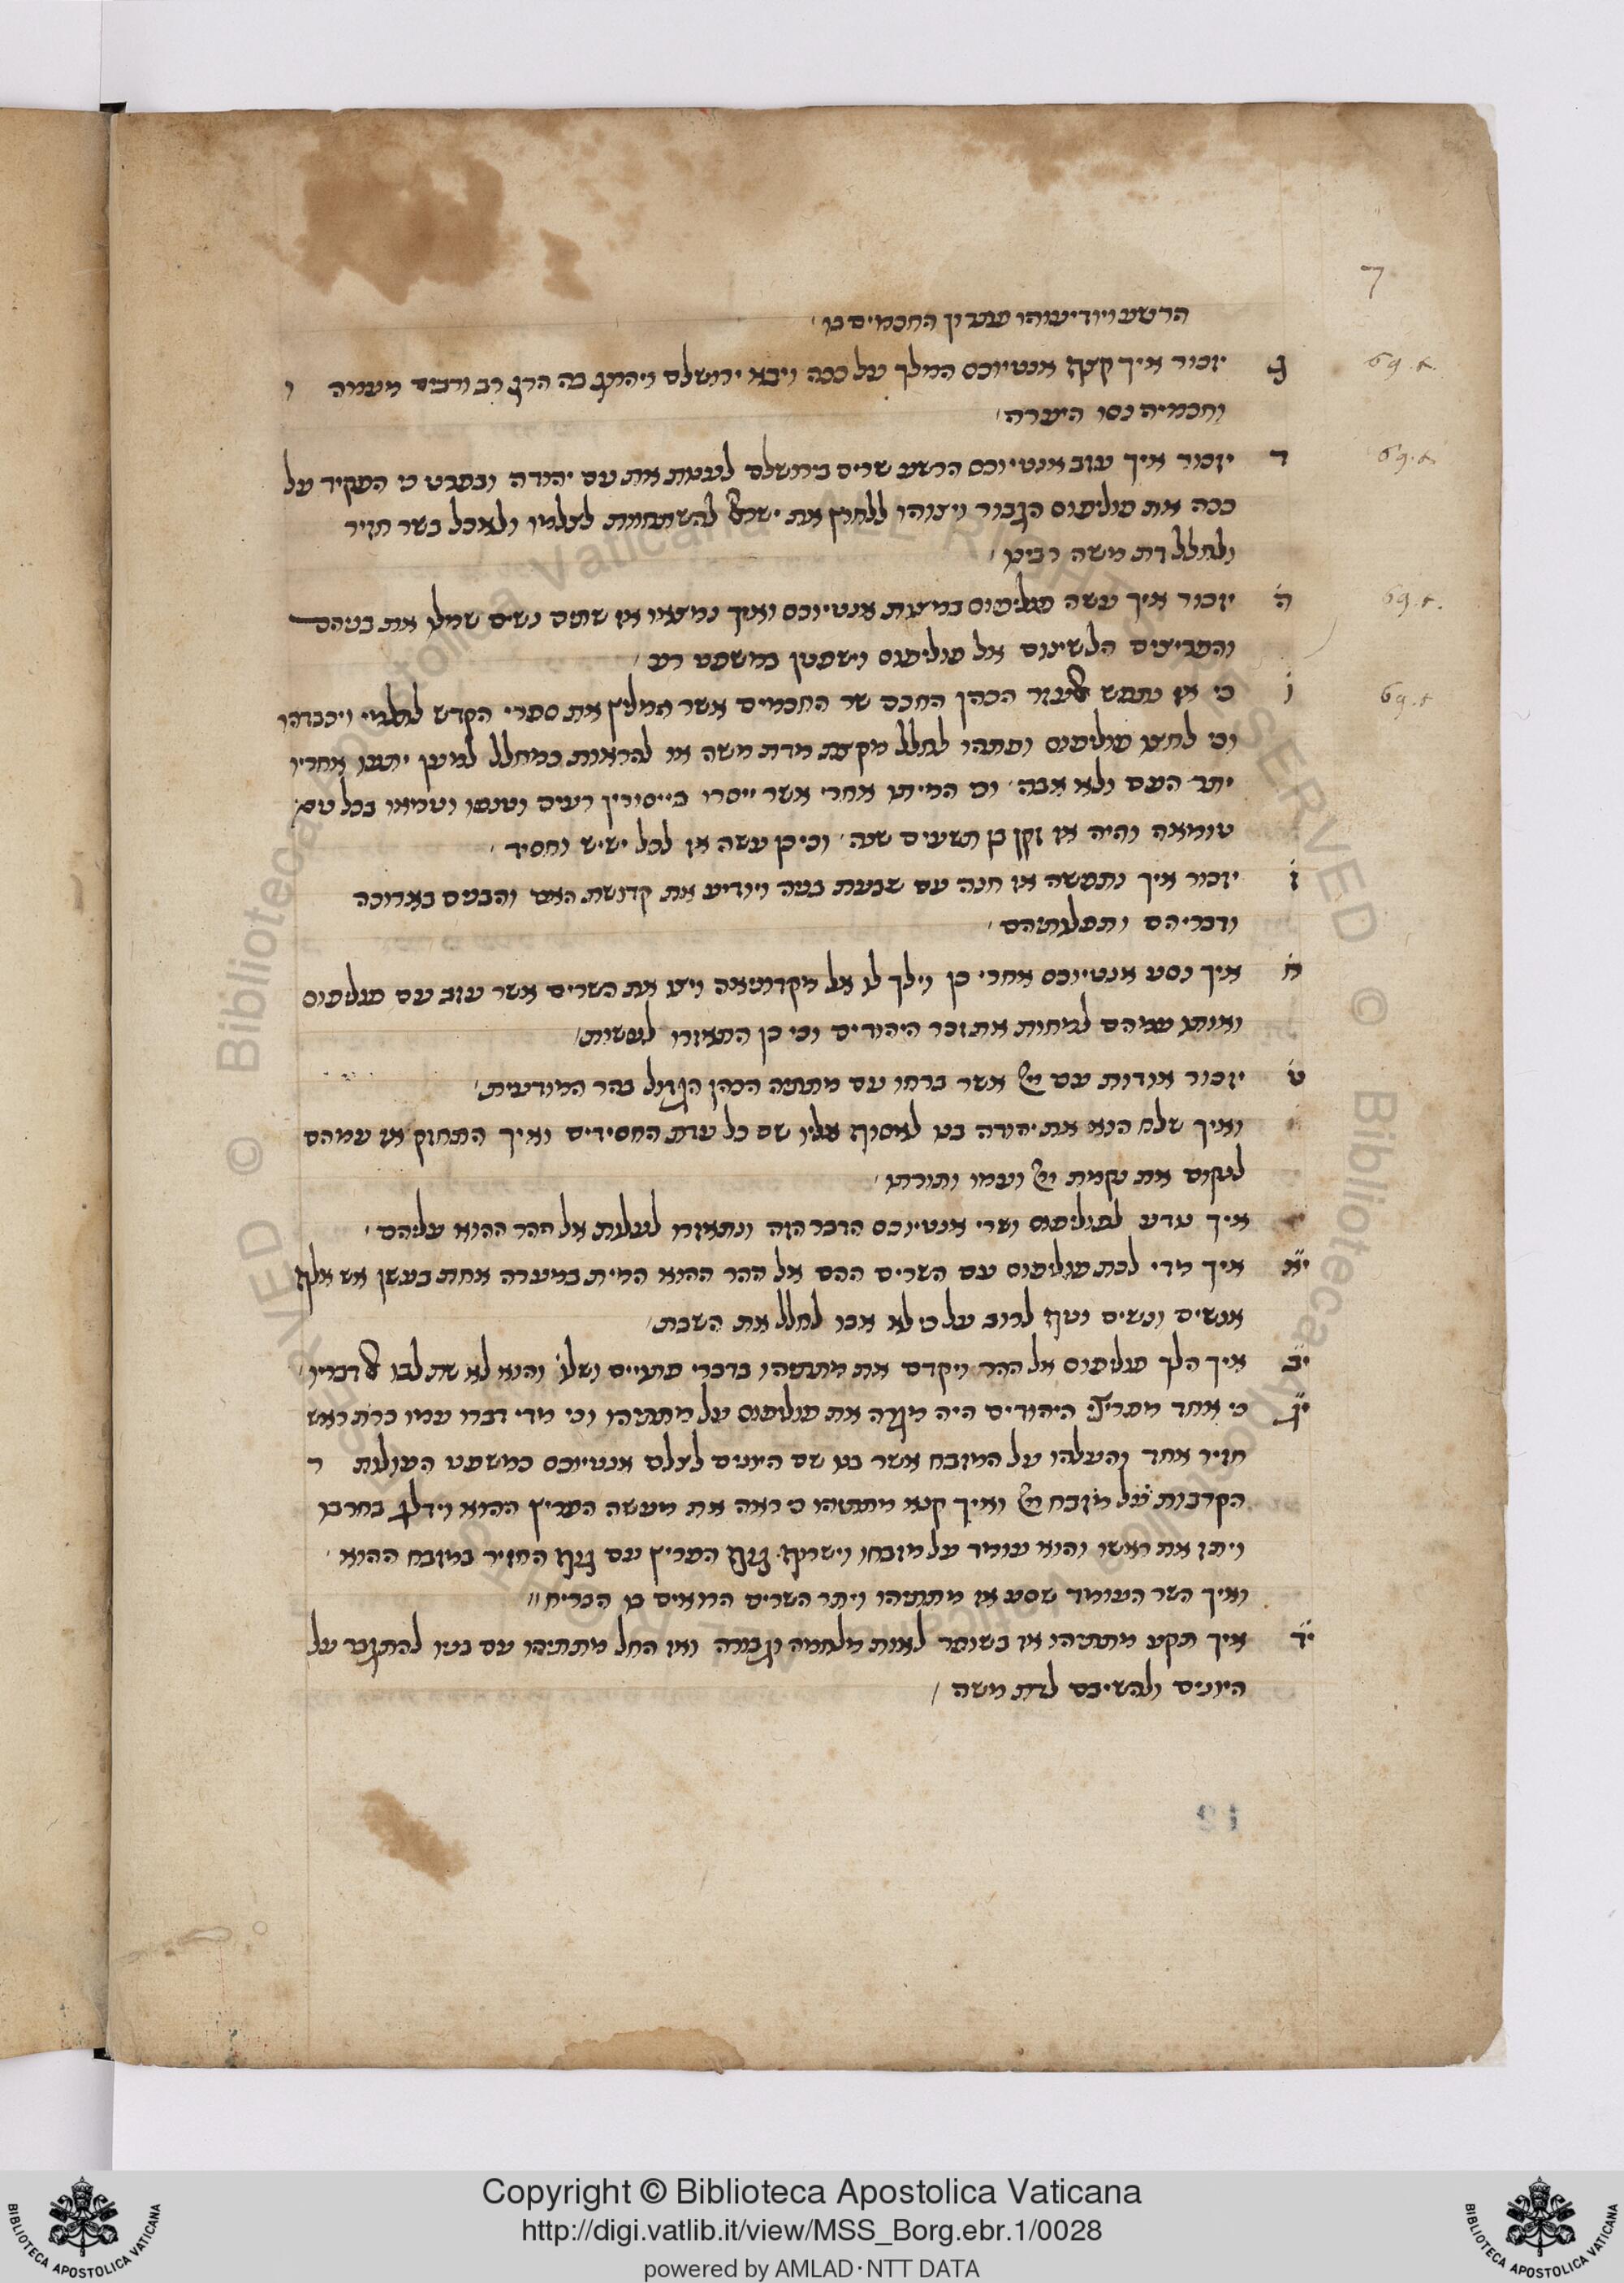 7
הרשע ויודיעוהו החכמים כן
69.t.
ג יזכור איך קצף אנטיוכס המלך על ככה ויבא ירושלם ויהרוג בה הרג רב ורבים מעמה ו
וחכמיה נסו היערה
69.t
ד יזכור איך עזב אנטיוכס הרשע שרים בירושלם לענות את עם יהודה ובפרט כי הפקיד על
ככה את פוליפוס הגבור ויצוהו ללחוץ את ישראל להשתחוות לצלמו ולאכל בשר חזיר
ולחלל דת משה רבינו
69.t.
ה יזכור איך עשה פוליפוס במצות אנטיוכס ואיך נמצאו אז שתים נשים שמלו את בניהם
והפריצים הלשינום אל פוליפוס וישפטן במשפט רע
69.t
ו כי אז נתפש אלעזר הכהן החכם שר החכמים אשר המליץ את ספרי הקדש לתלמי ויכבדהו
וכי לחצו פוליפוס ופתהו לחלל מקצת מדת משה או להראות כמחלל למען יתפתו אחריו
יתר העם ולא אבה וכי המיתו אחרי אשר ייסרו בייסורין רעים וטנפו וטמאו בכל
טומאה והיה אז זקן בן תשעים שנה וכי כן עשה אז לכל ישיש וחסיד
ז יזכור איך נתפשה אז חנה עם שבעת בניה ויודיע את קדושת האם והבנים בארוכה
ודבריהם ותפלותיהם
ח איך נסע אנטיוכס אחרי כן וילך לו אל מקדוניאה ויצו את השרים אשר עזב עם פוליפוס
ואותו עמהם למחות את זכר היהודים וכי כן התאזרו לעשות
ט יזכור אודות עם יי אשר ברחו עם מתתיה הכהן הגדול בהר המודעית
י ואיך שלח הוא את יהודה בנו לאסוף אליו שם כל עדת החסידים ואיך התחזק אז עמהם
לנקום את נקמת יי ועמו ותורתו
איך נודע לפוליפוס ושרי אנטיוכס הדבר הזה ונתאזרו לעלות אל ההר ההוא עליהם
יא איך מדי לכת פוליפוס עם השרים ההם אל ההר ההוא המית במערה אחת בעשן אש אלף
אנשים ונשים וטף לרוב על כי לא אבו לחלל את השבת
יב איך הלך פוליפוס אל ההר ויקדם את מתתיהו בדברי פתויים ושלו׳ והוא לא שת לבו אל דבריו
יג כי אחד מפריצי היהודים היה מגרה את פוליפוס על מתתיהו וכי מדי דברו עמו כרת ראש
חזיר אחד והעלהו על המזבח אשר בנו שם היונים לצלם אנטיוכס כמשפט העולות ר
הקרבות על מזבח יי ואיך קנא מתתיהו כי ראה את מעשה הפריץ ההוא וידלג בחרבו
ויתז את ראשו והוא עומד על מזבחו וישרוף גוף הפריץ עם גוף החזיר במזבח ההוא
ואיך השר העומד שסע אז מתתיהו ויתר השרים הרואים כן הבריח
יד איך תקע מתתיהו אז בשופר לאות מלחמה וגבורה ואז החל מתתיהו עם בניו להתגבר על
היונים ולהשיבם לדת משה
Copyright © Biblioteca Apostolica Vaticana
http://digi.vatlib.it/view/MSS_Borg.ebr.1/0028
powered by AMLAD · NTT DATA
BIBLIOTECA APOSTOLICA VATICANA
BIBLIOTECA APOSTOLICA VATICANA